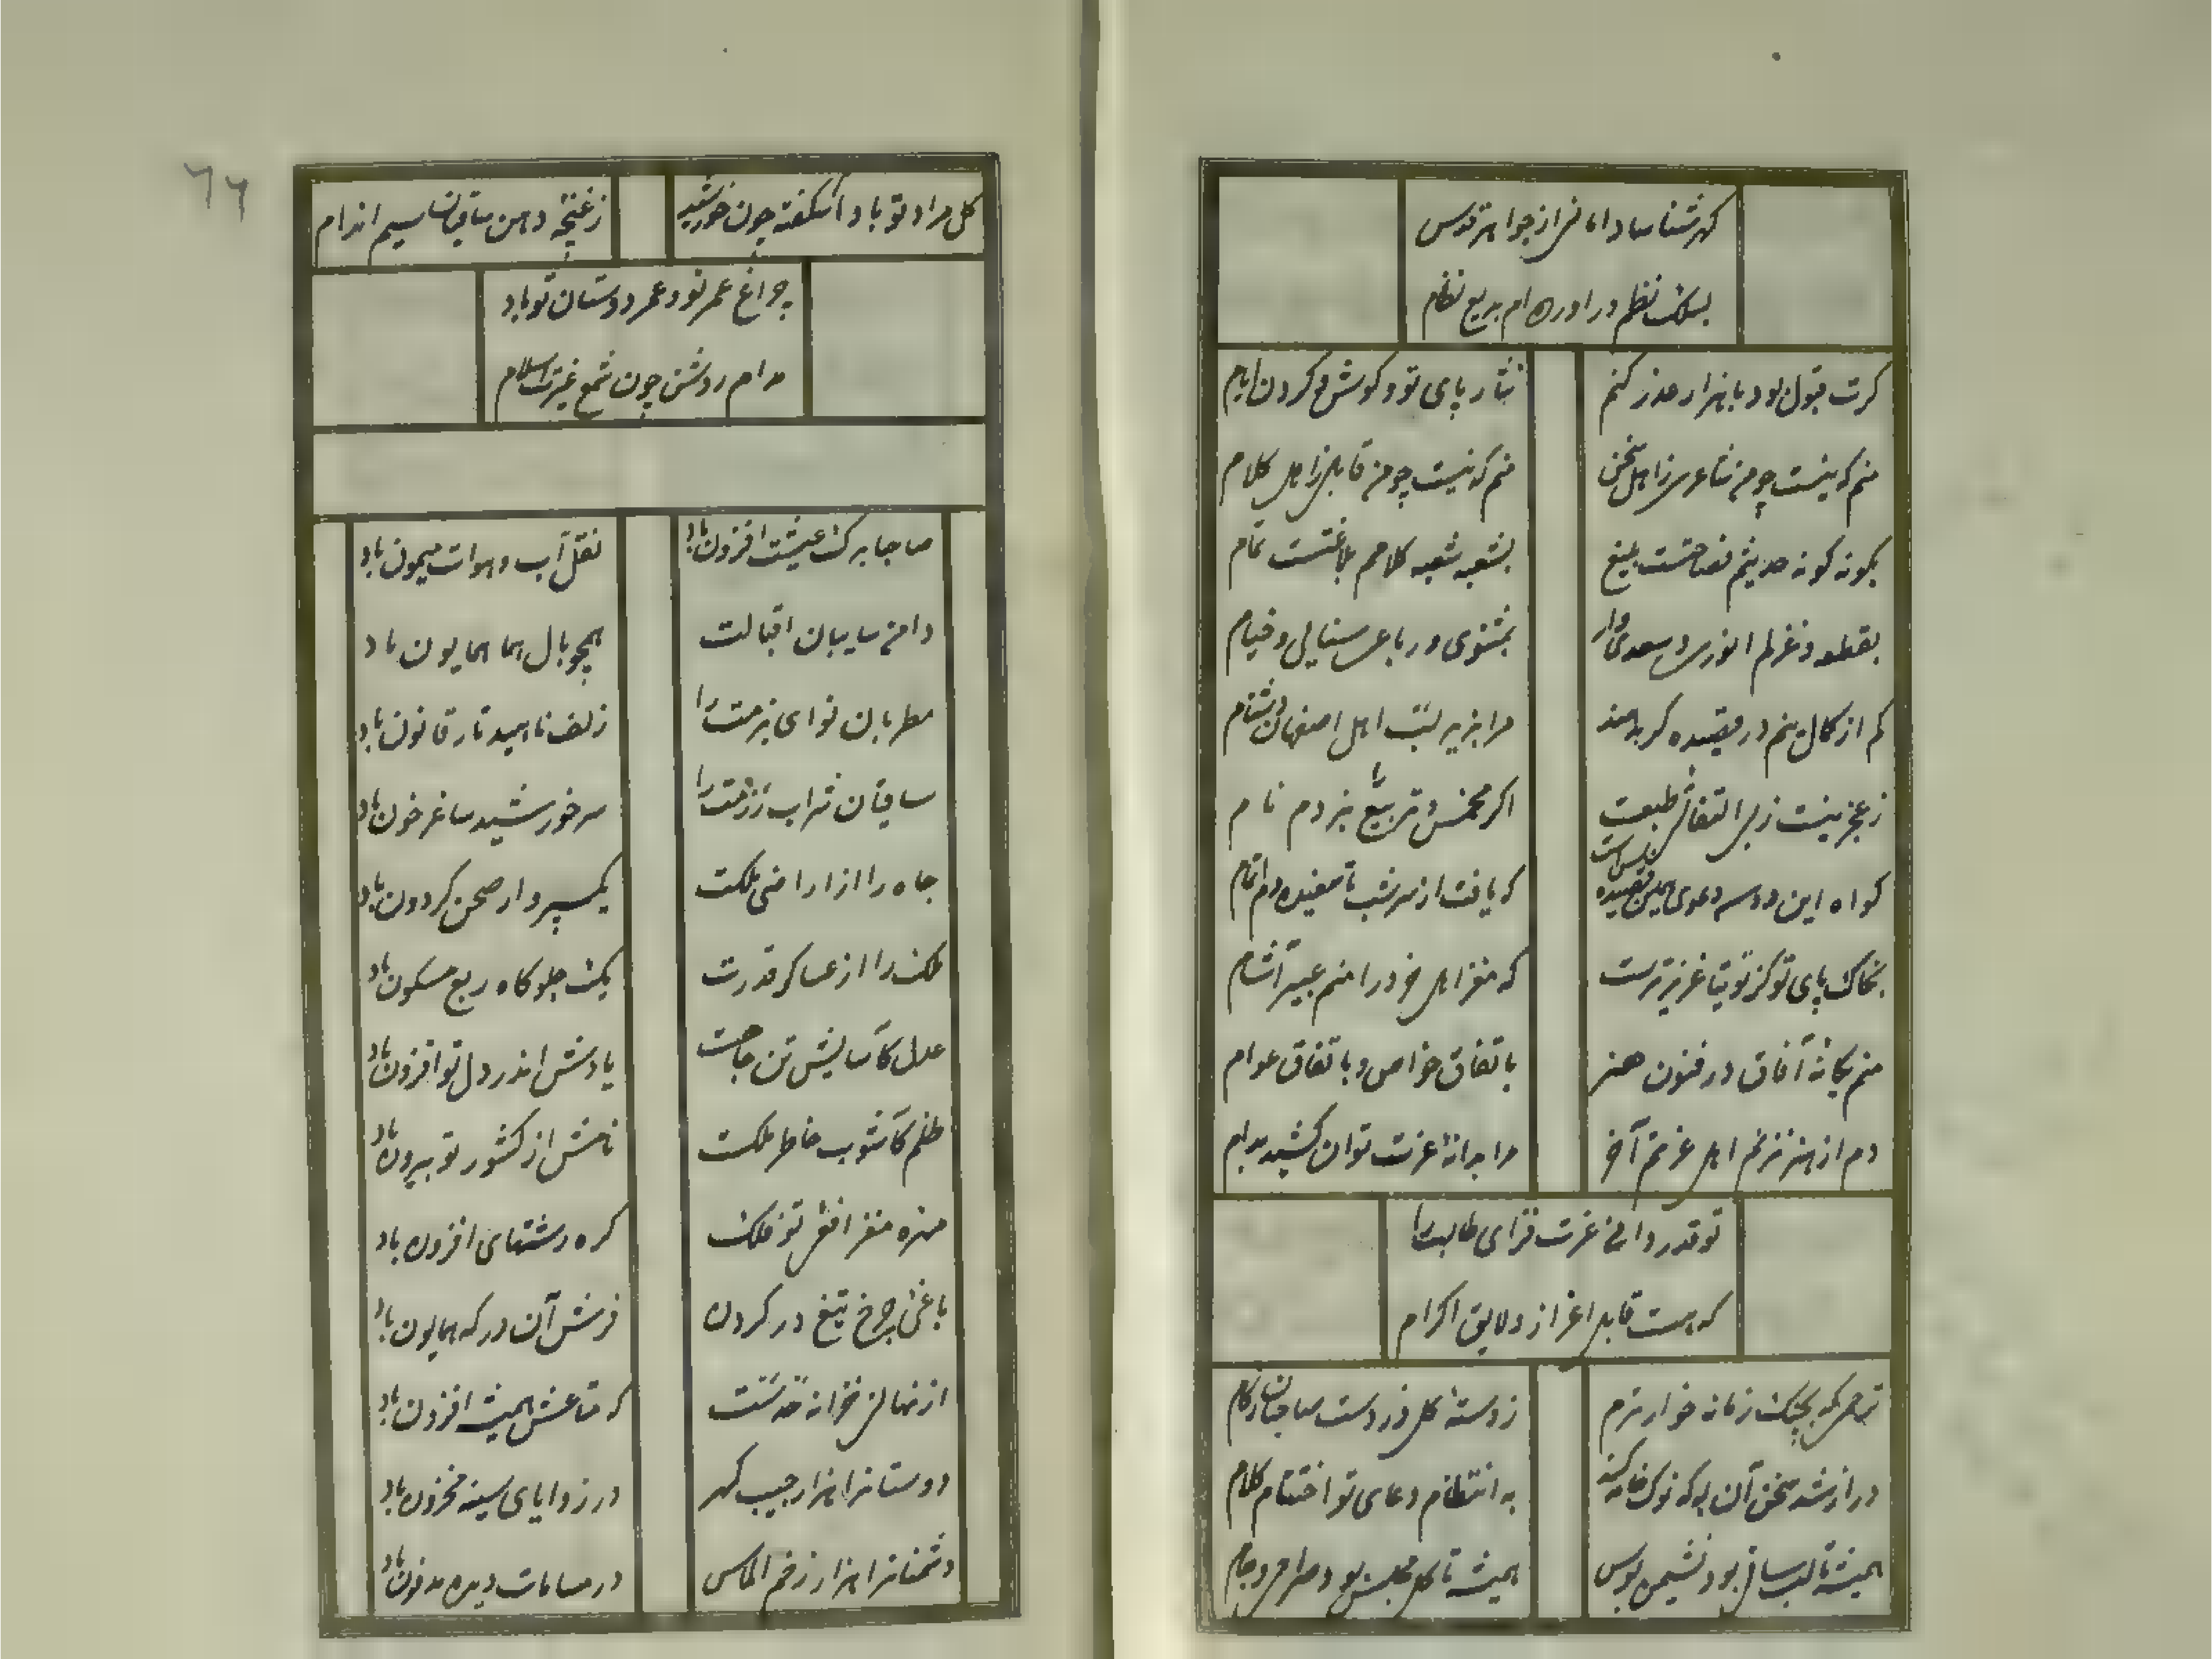 گهرشناسا دامانی از جواهر قدس
بسلک نظم در آورده ام بدیع نظام
کرت قبول بود با هزار عذر کنم
نثار پای تو و گوش و گردن ایام
منم که نیست چو من شاعری ز اهل سخن
منم که نیست چو من قابلی ز اهل کلام
بگونه گونه حدیثم فصاحتست بلیغ
بشعبه شعبه کلامم بلاغتست تمام
بقطعه و غزلم انوری و سعدی وار
بمثنوی و رباعی سنایی و خیام
کم از کمال نیم در قصیده گر بدهند
مرا بزیر لب اهل اصفهان دشنام
ز عجز نیست ز بی التفاتی طبعست
اگر مخمس و تربیع نبردم نام
گواه این دو سه دعوی همین قصیده بس است
که یافت از سر شب تا سفیده دم اتمام
بخاک پای تو کز توتیا عزیزترست
که مغز اهل خرد را منم عبیر آشام
منم یگانه آفاق در فنون هنر
باتفاق خواص و باتفاق عوام
دم از هنر نزنم اهل عزتم آخر
مرا بدانه عزت توان کشید بدام
تو قدردانی عزت فزای طالب را
که هست قابل اعزاز و لایق اکرام
ز دسته گل در دست صاحبان زکام
دراز شد سخن آن به که نوک خامه کند
به انتظام دعای تو اختتام کلام
همیشه تا لب ساقی بود نشیمن بوس
همیشه تا گل مجلس بود صراحی و جام
گل مراد تو بادا شکفته چون خورشید
ز غنچه دهن ساقیان سیم اندام
چراغ عمر تو و عمر دوستان تو باد
مدام روشن چون شمع عزت اسلام
صاحبا برک عیشت افزون باد
نقل آب و هوات میمون باد
دامن سایبان اقبالت
همچو بال هما همایون باد
مطربان نوای بزمت را
زلف ناهید تار قانون باد
ساقیان شراب رزمت را
سر خورشید ساغر خون باد
جاه را از اراضی ملکت
یکسپروار صحن گردون باد
ملک را از عساکر قدرت
یک جلوگاه ربع مسکون باد
عدل کآسایش تن جاهست
یادش اندر دل تو افزون باد
ظلم کآشوب خاطر ملکست
نامش از کشور تو بیرون باد
مهره مغز افعی تو فلک
کره رشتهای افزون باد
باغی چرخ تیغ در گردن
فرش آن درگه همایون باد
از نهالی خزانه خدمتت
که متاعش همیشه افزون باد
دوستانرا هزار جیب گهر
در زوایای سینه مخزون باد
دشمنانرا هزار زخم الماس
در مسامات دیده مدفون باد
۶۶